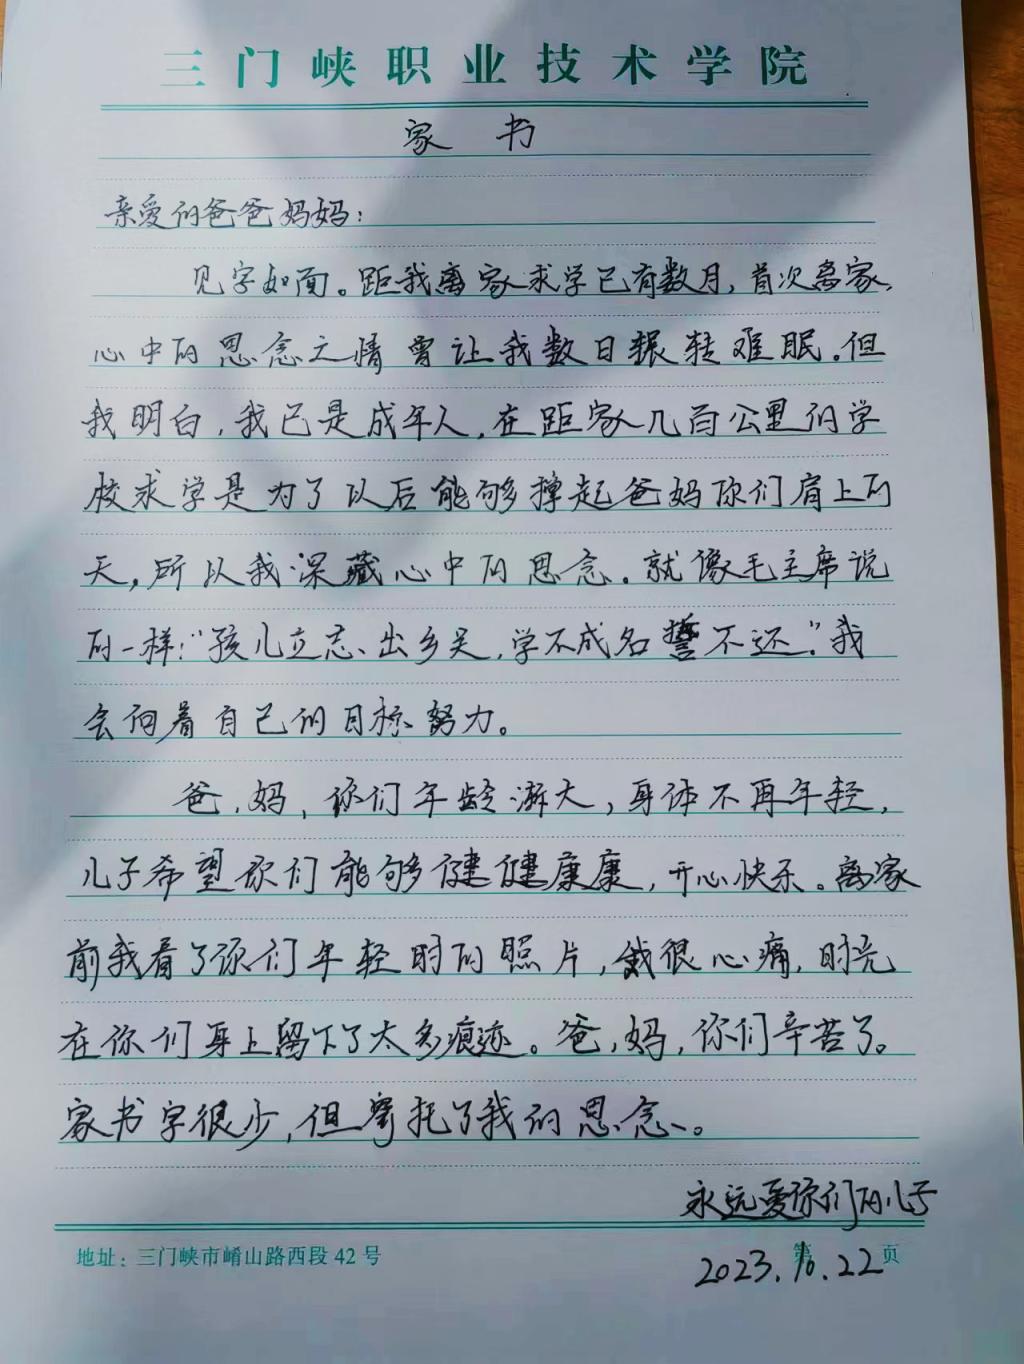 三门峡职业技术学院
家 书
亲爱的爸爸妈妈：
见字如面。距我离家求学已有数月，首次离家，
心中的思念之情曾让我数日辗转难眠。但
我明白，我已是成年人，在距家几百公里的学
校求学是为了以后能够撑起爸妈你们肩上的
天，所以我深藏心中的思念。就像毛主席说
的一样：“孩儿立志、出乡关，学不成名誓不还。”我
会向着自己的目标努力。
爸，妈，你们年龄渐大，身体不再年轻，
儿子希望你们能够健健康康，开心快乐。离家
前我看了你们年轻时的照片，我很心痛，时光
在你们身上留下了太多痕迹。爸，妈，你们辛苦了。
家书字很少，但寄托了我的思念。
永远爱你们的儿子
地址：三门峡市崤山路西段 42 号
第 页
2023.10.22